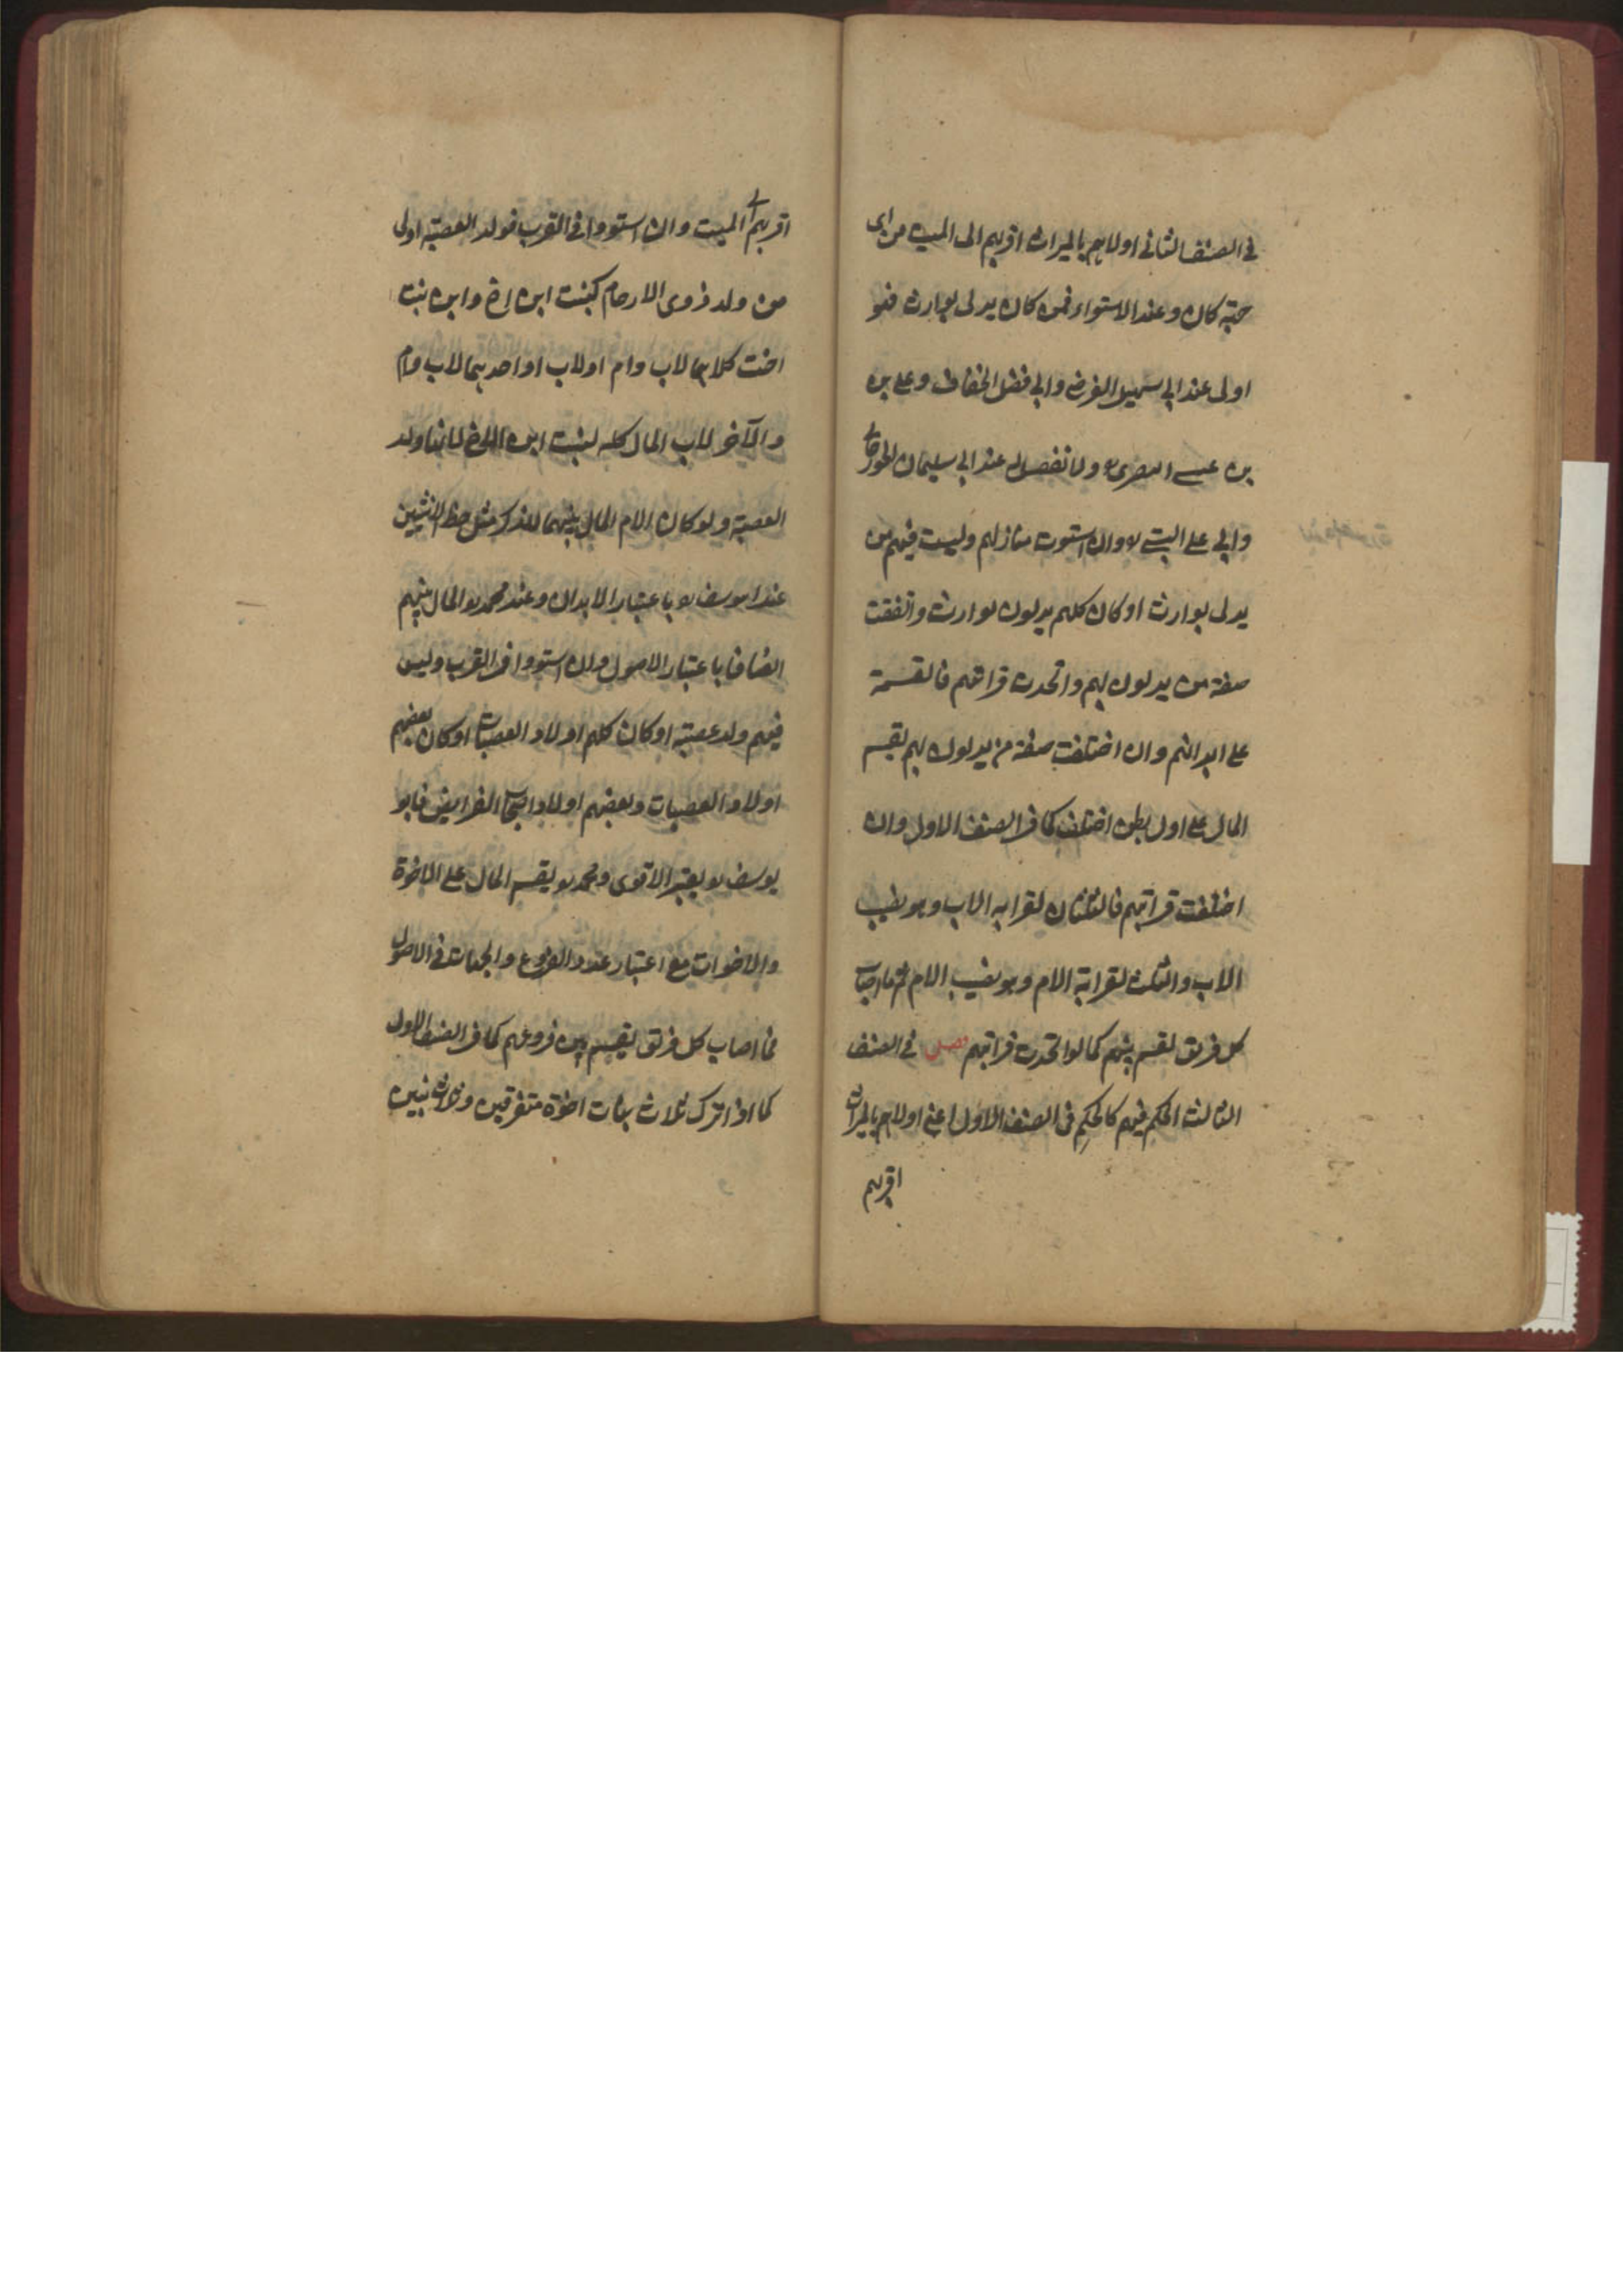 في الصنف الثاني اولاهم بالميراث اقربهم الى الميت من اى
جهة كان وعند الاستواء فمن كان يدلى بوارث فهو
اولى عند ابي سهيل الفرضى وابي فضل الخفاف وعلي بن
بن عيسى البصرى ولا تفضيل له عند ابي سليمان الجورجاني
وابي على البستى وان استوت منازلهم وليست فيهم من
يدلى بوارث او كان كلهم يدلون بوارث واتفقت
صفة من يدلون بهم واتحدت قرابتهم فالقسمة
على ابدانهم وان اختلفت صفة من يدلون بهم يقسم
المال على اول بطن اختلف كما في الصنف الاول وان
اختلفت قرابتهم فالثلثان لقرابه الاب وهو نصيب
الاب والثلث لقرابة الام وهو نصيب الام ثم ما اصاب
كل فريق يقسم بينهم كما لو اتحدت قرابتهم فصل في الصنف
الثالث الحكم فيهم كالحكم فى الصنف الاول اعنى اولاهم بالميراث
اقربهم
اقربهم الى الميت وان استووا في القرب فولد العصبة اولى
من ولد ذوى الارحام كبنت ابن اخ وابن بنت
اخت كلاهما لاب وام او لاب او احدهما لاب وام
والآخر لاب المال كله لبنت ابن الاخ لانها ولد
العصبة ولو كان الام المال بينهما للذكر مثل حظ الانثيين
عند ابويوسف باعتبار الابدان وعند محمد المال بينهم
انصافا باعتبار الاصول وان استووا في القرب وليس
فيهم ولد عصبة او كان كلهم اولاد العصبات او كان بعضهم
اولاد العصبات وبعضهم اولاد اصحاب الفرايض فابو
يوسف يعتبر الاقوى ومحمد يقسم المال على الاخوة
والاخوات مع اعتبار عدد الفروع والجهات في الاصول
فما اصاب كل فريق يقسم بين فروعهم كما في الصنف الاول
كما اذا ترك ثلاث بنات اخوة متفرقين وثلاث بنين